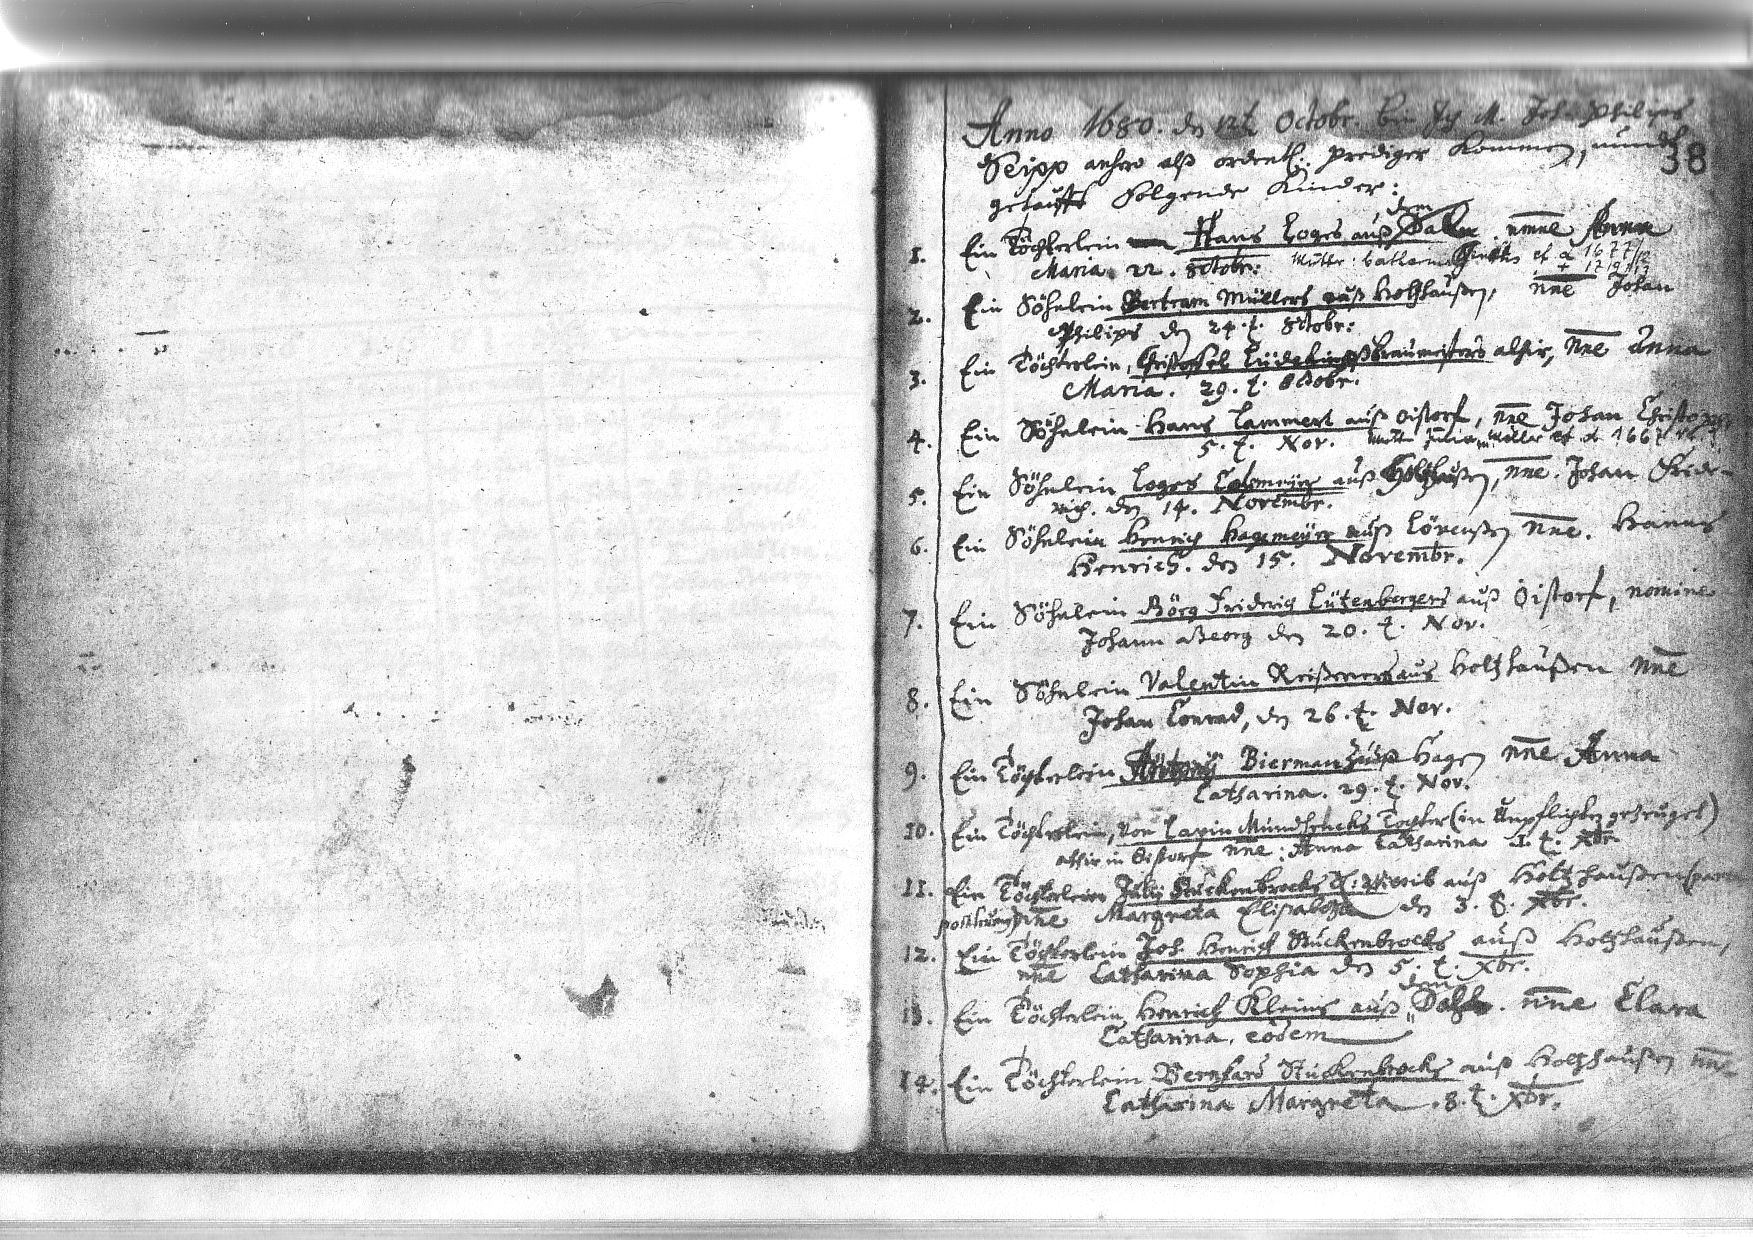 Anno 1680. dn 12t Octobr. bin Ich M. Joh. Philips
38
Seipp anhero alß ordentl. prediger kommen, unndt
getaufft folgende Kinder:
dem
1. Ein Töchterlein Hans Loges auß Dahle. nmne Anna
Maria. 22. 8tobr: Mutter: Cathern 1677/12
+ 1719/13
2. Ein Söhnlein Bertram Müllers auß Holtzhaußen, nne Johan
Philips den 24.t. 8tobr:
3. Ein Töchterlein, Christoffel braumeisters alhir, nne Anna
Maria. 29.t. 8tobr.
4. Ein Söhnlein Hans Lammert auß Oistorf, nne Johan Christoffer
5.t. Nov. Mutter
5. Ein Söhnlein Loges auß Holtzhaußen, nne. Johan Fride-
rich. den 14. Novembr.
6. Ein Söhnlein Henrich Hagemeyer auß Lörenßen nne. Hanns
Henrich. den 15. Novembr.
7. Ein Söhnlein Görg Friderich Lütenbergers auß Oistorf, nomine
Johann Georg den 20.t. Nov.
8. Ein Söhnlein Valentin Reißeners aus Holtzhaußen nne
Johan Conrad, dn 26.t. Nov.
9. Ein Töchterlein Biermans auß Hagen nne Anna
Catharina. 29.t. Nov.
10. Ein Töchterlein, von Mundhencks Tochter (in Unpflichten gezeuget)
alhir in Oistorf nne: Anna Catharina 1.t. Xbr.
11. Ein Töchterlein Stuckenbrocks auß Holtzhaußen
nne Margreta Elisabeth den 3. Xbr.
12. Ein Töchterlein Joh. Henrich Stuckenbrocks auß Holtzhaußen,
nne Catharina Sophia den 5.t. Xbr.
dem
13. Ein Töchterlein Henrich Kleins auß Dahle. nne Clara
Catharina. eodem
14. Ein Töchterlein Bernhard Stuckenbrocks auß Holtzhaußen nne
Catharina Margreta. 8.t. Xbr.